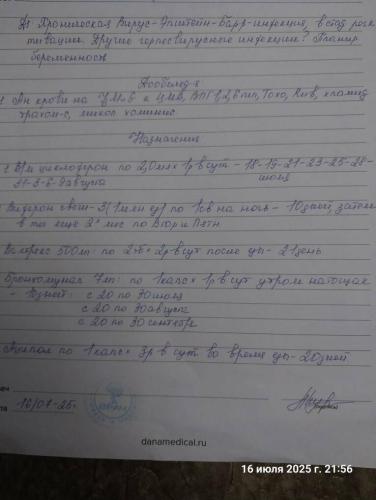 Ds Хроническая Вирус-Эпштейн-Барр-инфекция, в стад реак
тивации. Другие герпесвирусные инфекции? Планир
беременности
Дообслед-е
Ан крови на к ЦМВ, ВПГ1,2, Токо, хламид
трахом-с, микоп хоминис
Назначения
В/м циклоферон по 2,0мл х 1р в сут - 18-19-21-23-25-28-
31-3-6-9 августа
июля
Виферон свеч-3(1млн ед) по 1св на ночь - 10дней, затем
в те еще 2 мес по Втор и Пятн
Валтрекс 500мг: по 2т х 2р в сут после еды - 21день
Бронхомунал 7мг: по 1капс х 1р в сут утром натощак
- 10дней: с 20 по 30июля
с 20 по 30августа
с 20 по 30сентября
Аципол по 1капс х 3р в сут во время еды - 20дней
16/07-25г
danamedical.ru
16 июля 2025 г. 21:56